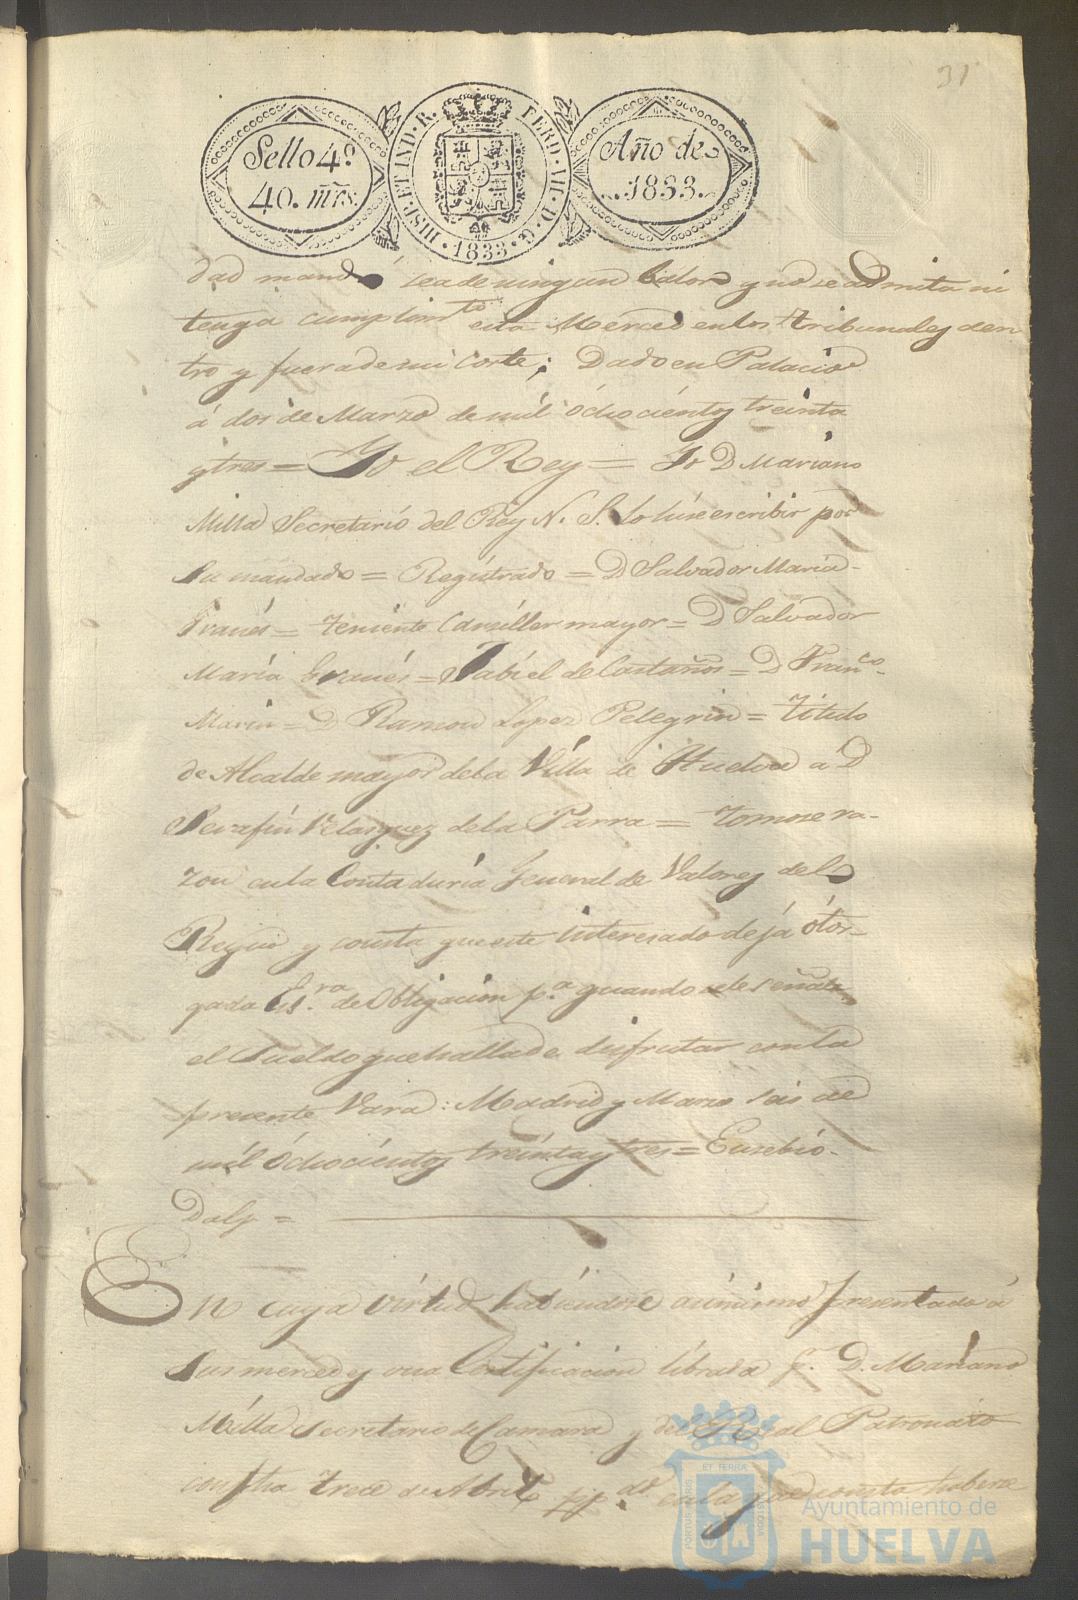 31
Sello 4.º
40. mrs.
HISP. ET IND. R. FERD. VII. D. G. 1833.
Año de
1833.
dad mando sea de ningun balor y no se admita ni
tenga cumplim.to esta Merced en los tribunales den
tro y fuera de mi Corte; Dado en Palacio
á dos de Marzo de mil óchocientos treinta
y tres = Yo el Rey = Yo D Mariano
Milla Secretario del Rey N. S. lo hise escribir por
su mandado = Registrado = D Salvador Maria
Granés = Teniente Canziller mayor = D Salvador
Maria Granés = Jabiel de Castaños = D Fran.co
Marin = D Ramon Lopez Pelegrin = Titulo
de Alcalde mayor de la Villa de Huelva á D
Serafin Velasquez de la Parra = tomose ra-
zon en la Contaduría General de Valores del
Reyno y consta que este interesado dejá ótor-
gada Es.ra de Obligacion p.a quando se le señale
el Sueldo que halla de disfrutar con la
presente Vara: Madrid y Marzo seis de
mil óchocientos treinta y tres = Eusebio
Dalp =
En cuya virtud habiendose asimismo presentado á
sus mercedes una Certificacion librada p.r D. Mariano
Milla Secretario de Camara y del Real Patronato
con fha trece de Abril pp.do en la que consta haberse
PORTUS MARIS ET TERRAE CUSTODIA
Ayuntamiento de
HUELVA